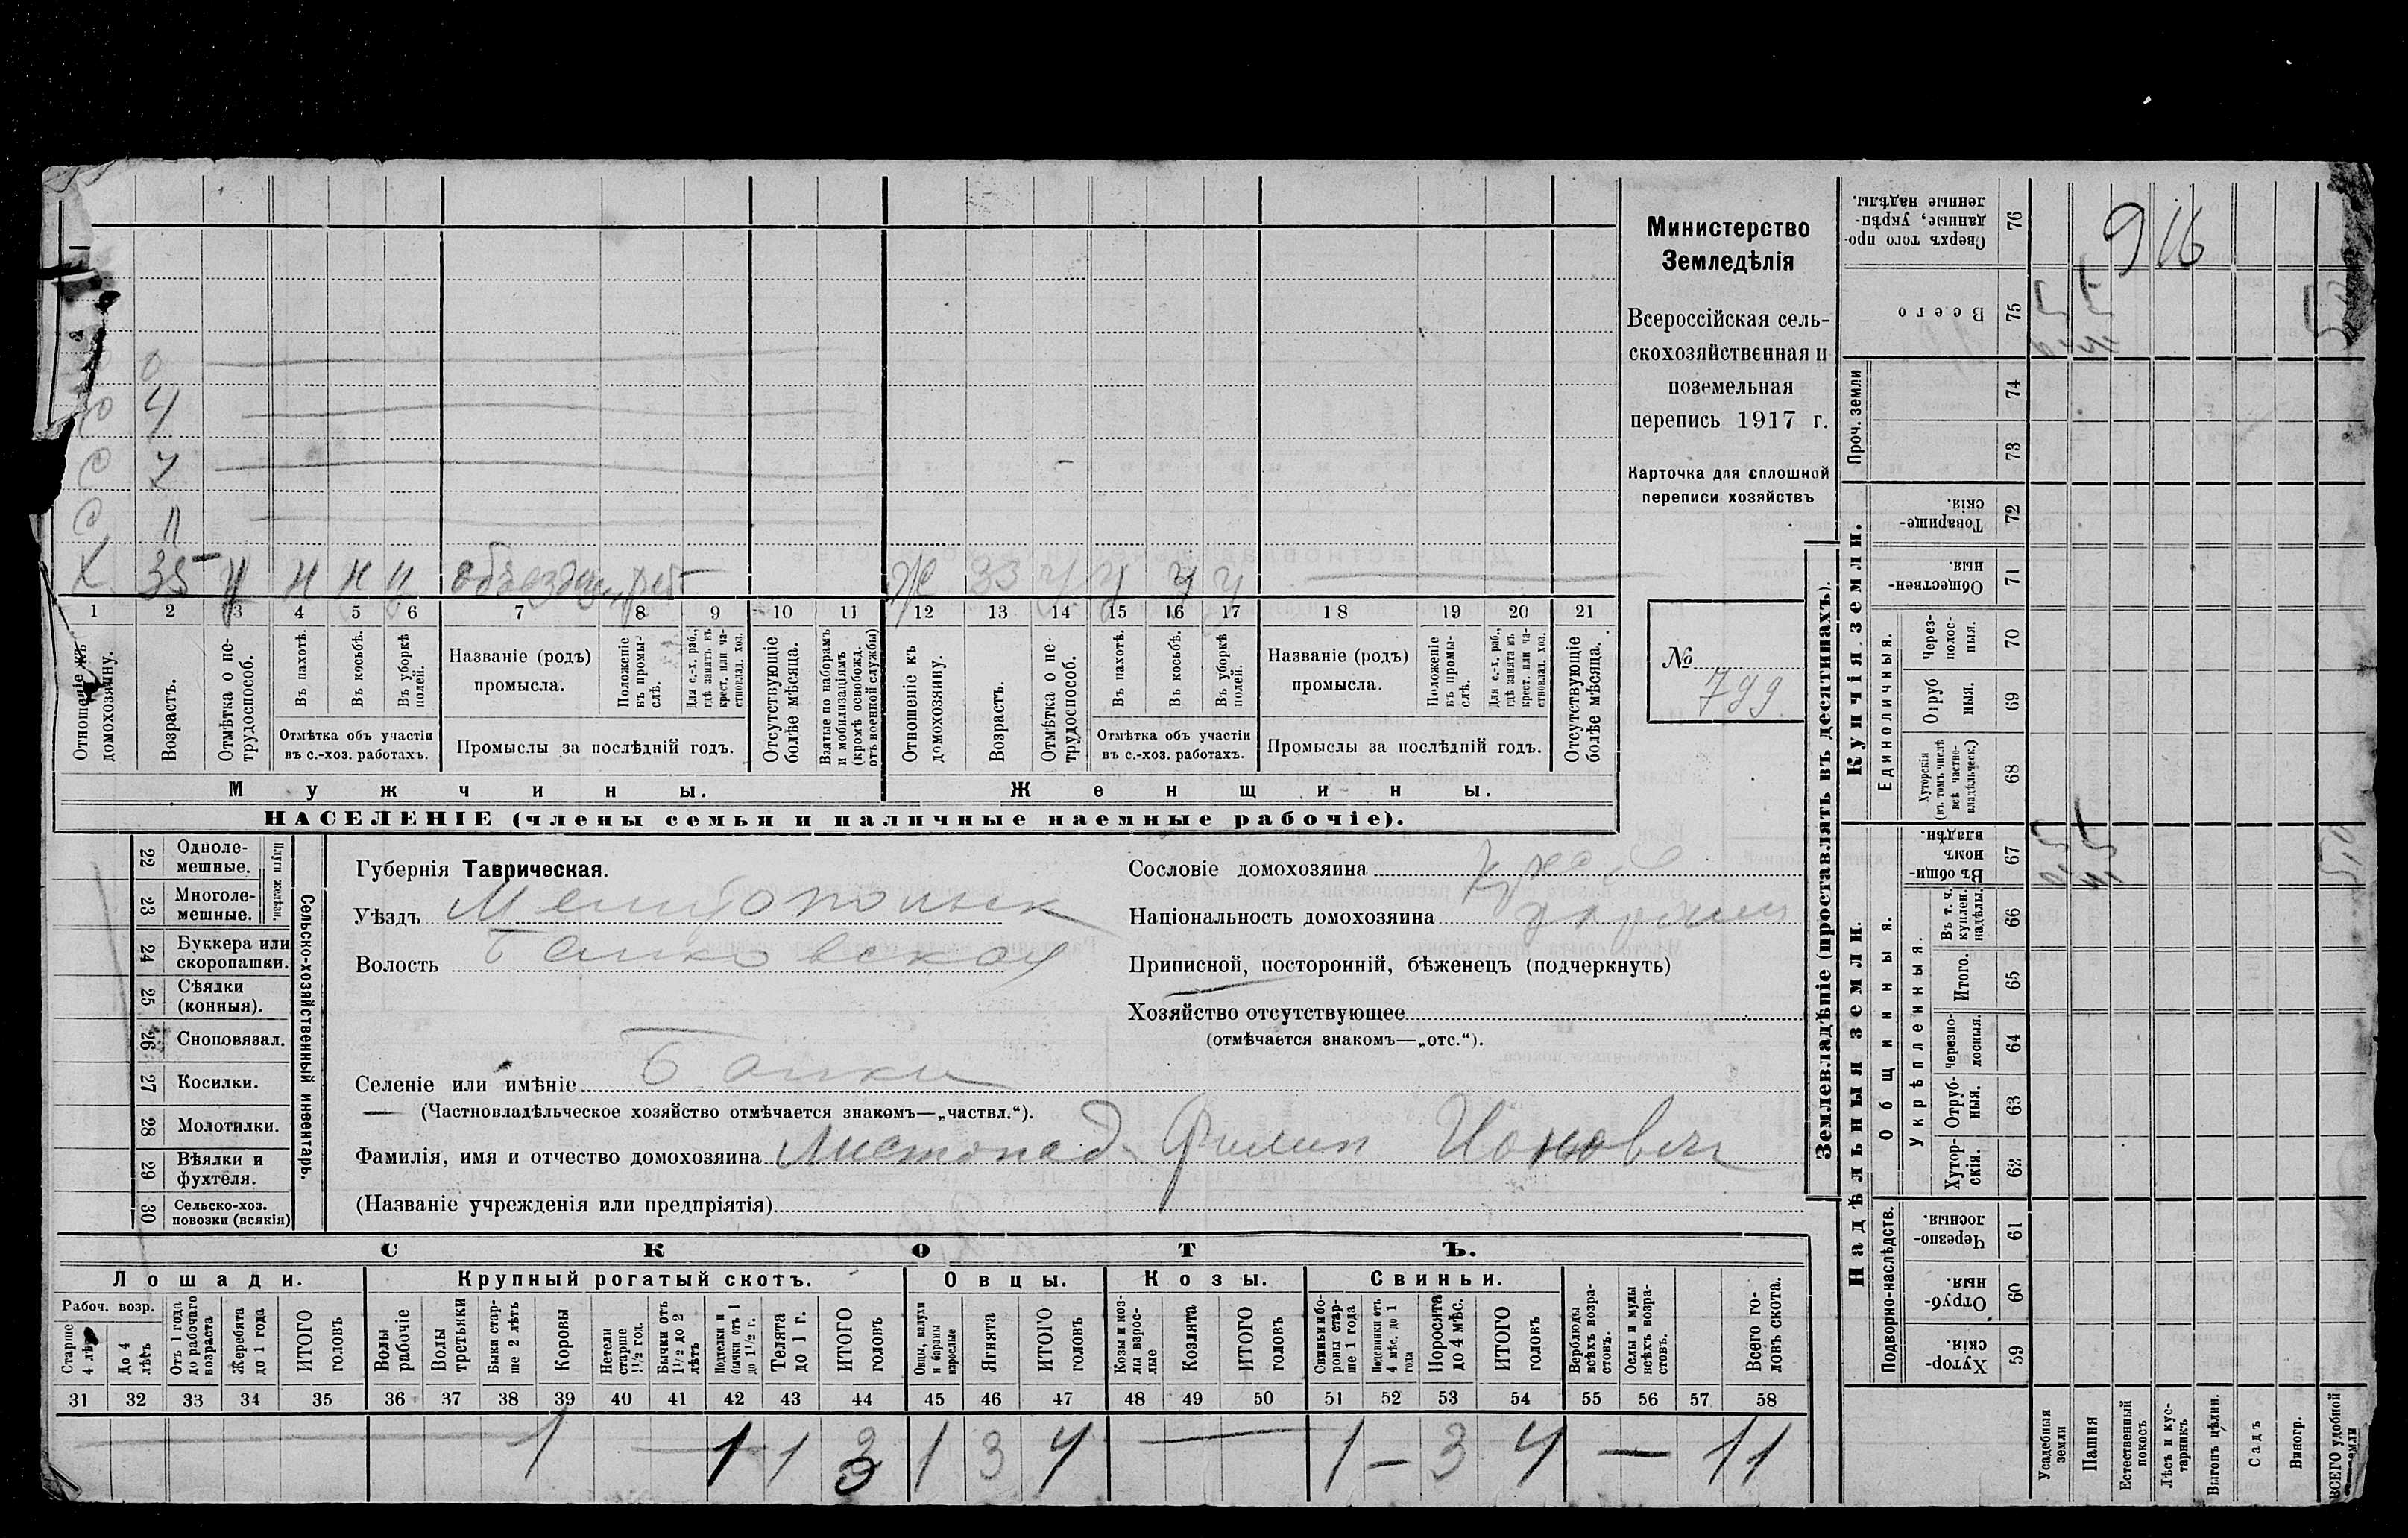 916
О
О 4
С 7
С 11
Х 35 н н у объездчик
Ж 33 у у у у
1 2 3 4 5 6 7 8 9 10 11 12 13 14 15 16 17 18 19 20 21
Отношеніе къ домохозяину.
Возрастъ.
Отмѣтка о нетрудоспособ.
Въ пахотѣ.
Въ косьбѣ.
Въ уборкѣ полей.
Отмѣтка объ участіи въ с.-хоз. работахъ.
Названіе (родъ) промысла.
Положеніе въ промыслѣ.
Для с.-х. раб., гдѣ занятъ въ крест. или частновлад. хоз.
Промыслы за послѣдній годъ.
Отсутствующіе болѣе мѣсяца.
Взятые по наборамъ и мобилизаціямъ (кромѣ освобожд. отъ военной службы)
Отношеніе къ домохозяину.
Возрастъ.
Отмѣтка о нетрудоспособ.
Въ пахотѣ.
Въ косьбѣ.
Въ уборкѣ полей.
Отмѣтка объ участіи въ с.-хоз. работахъ.
Названіе (родъ) промысла.
Положеніе въ промыслѣ.
Для с.-х. раб., гдѣ занята въ крест. или частновлад. хоз.
Промыслы за послѣдній годъ.
Отсутствующіе болѣе мѣсяца.
Мужчины.
Женщины.
НАСЕЛЕНІЕ (члены семьи и наличные наемные рабочіе).
Министерство
Земледѣлія
Всероссійская сель-
скохозяйственная и
поземельная
перепись 1917 г.
Карточка для сплошной
переписи хозяйствъ
№ 799
22 Одноле-мешные.
23 Многоле-мешные.
Плуги желѣзн.
24 Буккера или скоропашки.
25 Сѣялки (конныя).
26 Сноповязал.
27 Косилки.
28 Молотилки.
29 Вѣялки и фухтеля.
30 Сельско-хоз. повозки (всякія)
Сельско-хозяйственный инвентарь.
Губернія Таврическая.
Уѣздъ Мелитопольск
Волость Балковская
Селеніе или имѣніе Балки
— (Частновладѣльческое хозяйство отмѣчается знакомъ—„частвл.“).
Фамилія, имя и отчество домохозяина Листопад Филип Ионович
(Названіе учрежденія или предпріятія)
Сословіе домохозяина
Національность домохозяина
Приписной, посторонній, бѣженецъ (подчеркнуть)
Хозяйство отсутствующее
(отмѣчается знакомъ—„отс.“).
СКОТЪ.
Лошади.
Крупный рогатый скотъ.
Овцы.
Козы.
Свиньи.
Рабоч. возр.
Старше 4 лѣтъ
До 4 лѣтъ
Отъ 1 года до рабочаго возраста
Жеребята до 1 года
ИТОГО головъ
Волы рабочіе
Волы третьяки
Быки старше 2 лѣтъ
Коровы
Нетели старше 1½ год.
Бычки отъ 1½ до 2 лѣтъ
Подтелки и бычки отъ 1 до 1½ г.
Телята до 1 г.
ИТОГО головъ
Овцы, валухи и бараны взрослые
Ягнята
ИТОГО головъ
Козы и козлы взрослые
Козлята
ИТОГО головъ
Свиньи и боровы старше 1 года
Подсвинки отъ 4 мѣс. до 1 года
Поросята до 4 мѣс.
ИТОГО головъ
Верблюды всѣхъ возрастовъ.
Ослы и мулы всѣхъ возрастовъ.
Всего головъ скота.
31 32 33 34 35 36 37 38 39 40 41 42 43 44 45 46 47 48 49 50 51 52 53 54 55 56 57 58
— 1 — 1 1 3 1 3 4 — 1 — 3 4 — 11
Землевладѣніе (проставлять въ десятинахъ).
Купчія земли.
Надѣльныя земли.
Сверхъ того проданные, укрѣпленные надѣлы. 76
Всего 75
Проч. земли 74
73
Товарищескія. 72
Общественныя. 71
Единоличныя.
Черезполосныя. 70
Отрубныя. 69
Хуторскія (въ томъ числѣ всѣ частновладѣльческ.) 68
Общинныя.
Въ общинномъ владѣн. 67
Укрѣпленныя.
Въ т. ч. куплен. надѣлы. 66
Итого. 65
Черезполосныя. 64
Отрубныя. 63
Хуторскія. 62
Подворно-наслѣдств.
Черезполосныя. 61
Отрубныя. 60
Хуторскія. 59
Усадебныя земли
Пашня
Естественный покосъ
Лѣсъ и кустарникъ
Выгонъ цѣлин.
Садъ
Виногр.
ВСЕГО удобной земли